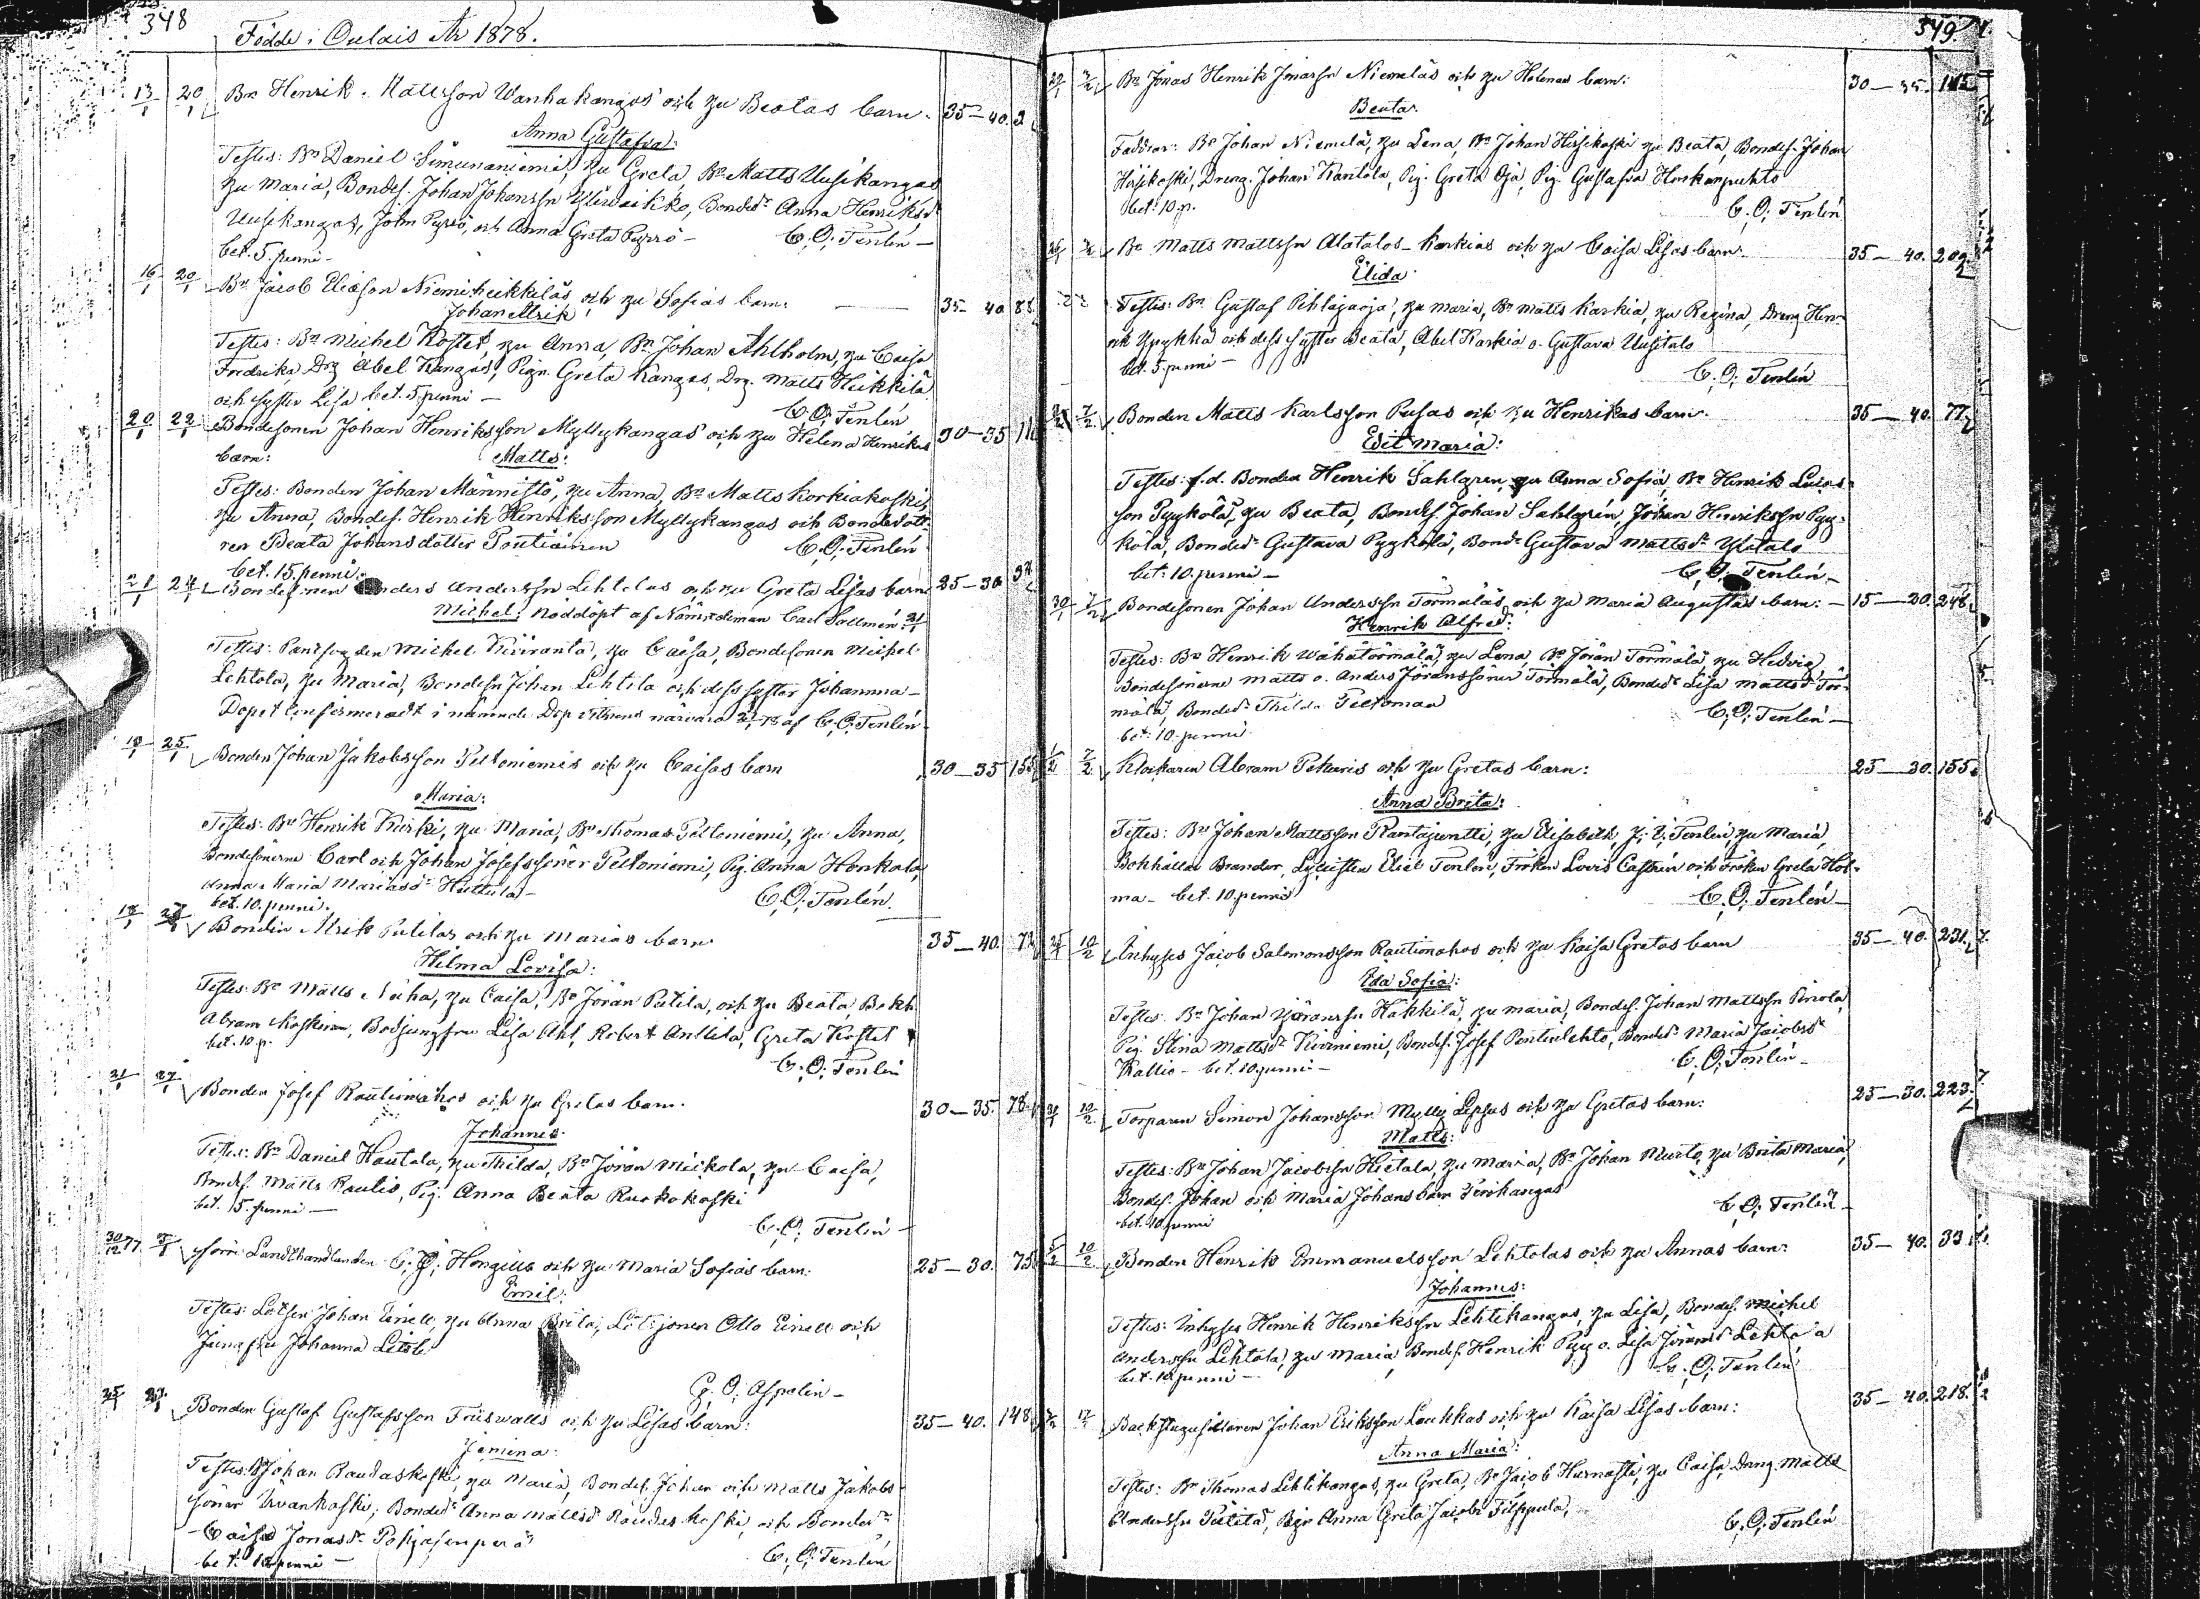 348
Födde i Oulais År 1878.
13/1 20/1 Bn Henrik Mattsson Wanhakangas och hu Beatas barn. 35–40. 2
Anna Gustafva:
Testes: Bn Daniel Simunaniemi, hu Greta, Bn Matts Uusikangas
hu Maria, Bondes. Johan Johanssn Yliwaikko, Bonded. Anna Henriksd.
Uusikangas, John Pyrrö, och Anna Greta Pyrrö – C. O. Tenlén –
bet. 5. penni –
16/1 20/1 Bn Jacob Eliasson Niemiheikkiläs och hu Sofias barn: 35– 40 88
Johan Alrik
Testes: Bn Michel Kostet, hu Anna, Bn Johan Ahlholm, hu Caisa
Fredrika, Drg Abel Kangas, Pign. Greta Kangas, Drg. Matts Heikkilä
och syster Lisa bet. 5 penni –
C. O. Tenlén
20/1 22/1 Bondesonen Johan Henriksson Myllykangas och hu Helena Henriks 30–35
barn: Matts:
Testes: Bonden Johan Männistö, hu Anna, Bn Matts Korkiakoski,
hu Anna, Bondes. Henrik Henriksson Myllykangas och Bondedott-
ren Beata Johansdotter Pontiainen C. O. Tenlén
bet. 15. penni.
21/1 24/1 Bondesonen Anders Anderssn Lehtolas och hu Greta Lisas barn 25–30
Michel: Nöddöpt af Nämndeman Carl Sallmén 21/1
Testes: Michel Kiviranta, hu Caisa, Bondesonen Michel
Lehtola, hu Maria, Bondesn Johan Lehtola och dess syster Johanna –
Dopet confirmeradt i nämnde Dopvittnens närvaro af C. O. Tenlén
19/1 25/1 Bonden Johan Jakobsson Peltoniemis och hu Caisas barn 30–35
Maria:
Testes: Bn Henrik Kurki, hu Maria, Bn Thomas Peltoniemi, hu Anna,
Bondesönerne Carl och Johan Josefssöner Peltoniemi, Pig. Anna Honkala,
Anna Maria Mariasd. Huttula –
bet. 10. penni. C. O. Tenlén.
Bonden Alrik Putilas och hu Marias barn 35–40.
Hilma Lovisa:
Testes: Bn Matts Naha, hu Caisa, Bn Jöran Putila, och hu Beata, Bokh.
Abram Koskinen, Bodjungfru Lisa Ahl, Robert Anttila, Greta Kostet
bet. 10. p.
C. O. Tenlén
21/1 27/1 Bonden Josef Rautiomahos och hu Gretas barn. 30–35. 78
Johannes
Testes: Bn Daniel Hautala, hu Thilda, Bn Jöran Mickola, hu Caisa,
Bondes. Matts Rautio, Pig. Anna Beata Ruokokoski
bet. 15. penni –
C. O. Tenlén –
30/12 77 Förre Landthandlanden C. J. Hongells och hu Maria Sofias barn: 25–30. 75
Emil:
Testes: Lotsen Johan Einell, hu Anna Brita, Lotsjonen Otto Einell och
Jungfru Johanna
G. O. Aspelin –
Bonden Gustaf Gustafsson Friswalls och hu Lisas barn: 35–40. 148
Jemina:
Testes: Bn Johan Raudaskoski, hu Maria, Bondes. Johan och Matts Jakobs-
söner Urvankoski, Bonded. Anna Mattsd. Raudaskoski och Bonded.
Caisa Jonasd. Pohjasenperä
bet. 10 penni – C. O. Tenlén
349
Bn Jonas Henrik Jonassn Niemeläs och hu Helenas barn: 30–35.
Beata.
Faddrar: Bn Johan Niemelä, hu Lena, Bn Johan Hirsikoski hu Beata, Bondes. Johan
Hirsikoski, Dreng. Johan Kantola, Pig. Greta Oja, Pig. Gustafva Honkanpuhto
bet. 10. p. C. O. Tenlén
Bn Matts Mattssn Alatalos-Karkias och hu Caisa Lisas barn. 35– 40. 209
Elida
Testes: Bn Gustaf Pihlajaoja, hu Maria, Bn Matts Karkia, hu Regina, Dreng Hen-
rik Ypykkä och dess syster Beata, Abel Karkia o. Gustava Uusitalo
bet. 5. penni –
C. O. Tenlén
Bonden Matts Karlsson Pusas och hu Henrikas barn. 35–40. 77
Edit Maria:
Testes: f.d. Bonden Henrik Sahlgren, hu Anna Sofia, Bn Henrik Lucas-
son Pyykölä, hu Beata, Bondes. Johan Sahlgrén, Johan Henrikssn Pyy-
kölä, Bonded. Gustava Pyykölä, Bond. Gustava Mattsd. Ylitalo
bet. 10. penni – C. O. Tenlén –
30/1 Bondesonen Johan Anderssn Törmäläs och hu Maria Augustas barn: – 15–20. 248
Henrik Alfred:
Testes: Bn Henrik Wähätörmälä, hu Lena, Bn Jöran Törmälä, hu Hedvig,
Bondesönerne Matts o. Anders Jöranssöner Törmälä, Bonded. Lisa Mattsd. Tör-
mälä, Bonded. Thilda Peltomaa C. O. Tenlén –
bet. 10. penni
1/2 7/2 Klockaren Abram Pekuris och hu Gretas barn: 25–30. 155
Anna Brita:
Testes: Bn Johan Mattsson Rantapuntti, hu Elisabeth, J. E. Tenlén, hu Maria,
Bokhållar Brander, Lyceisten Eliel Tenlén, Fröken Lovis Castrén och Fröken Greta Hol-
ma – bet. 10. penni C. O. Tenlén –
10/2 Inhyses Jacob Salomonsson Rautiomahos och hu Kaisa Gretas barn 35–40. 231.
Ida Sofia:
Testes: Bn Johan Jöranssn Häkkilä, hu Maria, Bondes. Johan Mattssn Piirola,
Pig. Stina Mattsd. Kiviniemi, Bondes. Josef Pentinlehto, Bonded. Maria Jacobsd.
Kallio – bet. 10. penni – C. O. Tenlén –
10/2 Torparen Simon Johansson Mylly Lepjas och hu Gretas barn: 25–30. 223.
Matts:
Testes: Bn Johan Jacobssn Hietala, hu Maria, Bn Johan Murto, hu Brita Maria,
Bondes. Johan och Maria Johans barn Pirikangas
bet. 10 penni C. O. Tenlén –
5/2 10/2 Bonden Henrik Emmanuelsson Lehtolas och hu Annas barn: 35–40. 33
Johannes:
Testes: Inhyses Henrik Henrikssn Lehtikangas, hu Lisa, Bondes. Michel
Anderssn Lehtola, hu Maria, Bondes. Henrik Pyy o. Lisa Jöransd. Lehtola
bet. 10. penni – C. O. Tenlén
Backstugusittaren Johan Eriksson Loukkas och hu Kaisa Lisas barn: 35–40. 218.
Anna Maria:
Testes: Bn Thomas Lehtikangas, hu Greta, Bn Jacob Hurnasti, hu Caisa, Dreng. Matts
Anderssn Putila, Pign Anna Greta Jacobsd. Filppula,
C. O. Tenlén